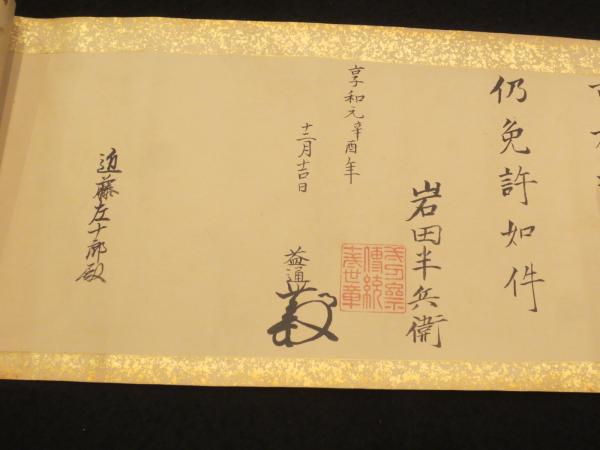 仍免許如件
岩田半兵衛
享和元辛酉年
十二月十四日
益通
近藤左十郎殿